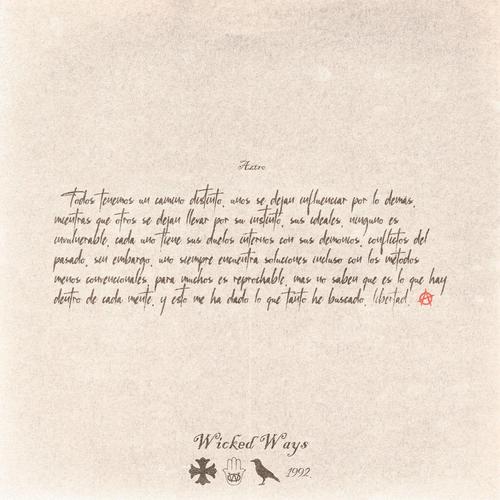 Aztro
Todos tenemos un camino distinto, unos se dejan influenciar por lo demás,
mientras que otros se dejan llevar por su instinto, sus ideales, ninguno es
invulnerable, cada uno tiene sus duelos internos con sus demonios, conflictos del
pasado, sin embargo, uno siempre encuentra soluciones incluso con los métodos
menos convencionales, para muchos es reprochable, mas no saben que es lo que hay
dentro de cada mente, y esto me ha dado lo que tanto he buscado, libertad.
Wicked Ways
1992